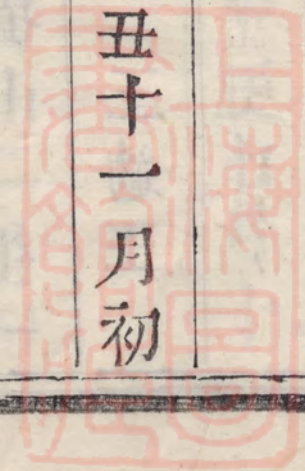 丑十一月初